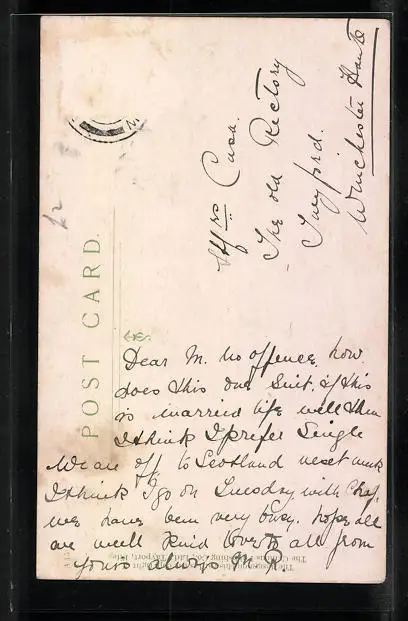 POST CARD.
Mrs
The old Rectory
Twyford.
Winchester Hants
Dear M. no offence. how
does this one suit. if this
is married life well then
I think I prefer Single
We are off to Scotland next week
I think I go on Tuesday with
we have been very busy. hope all
are well Kind love to all from
yours always M. R.